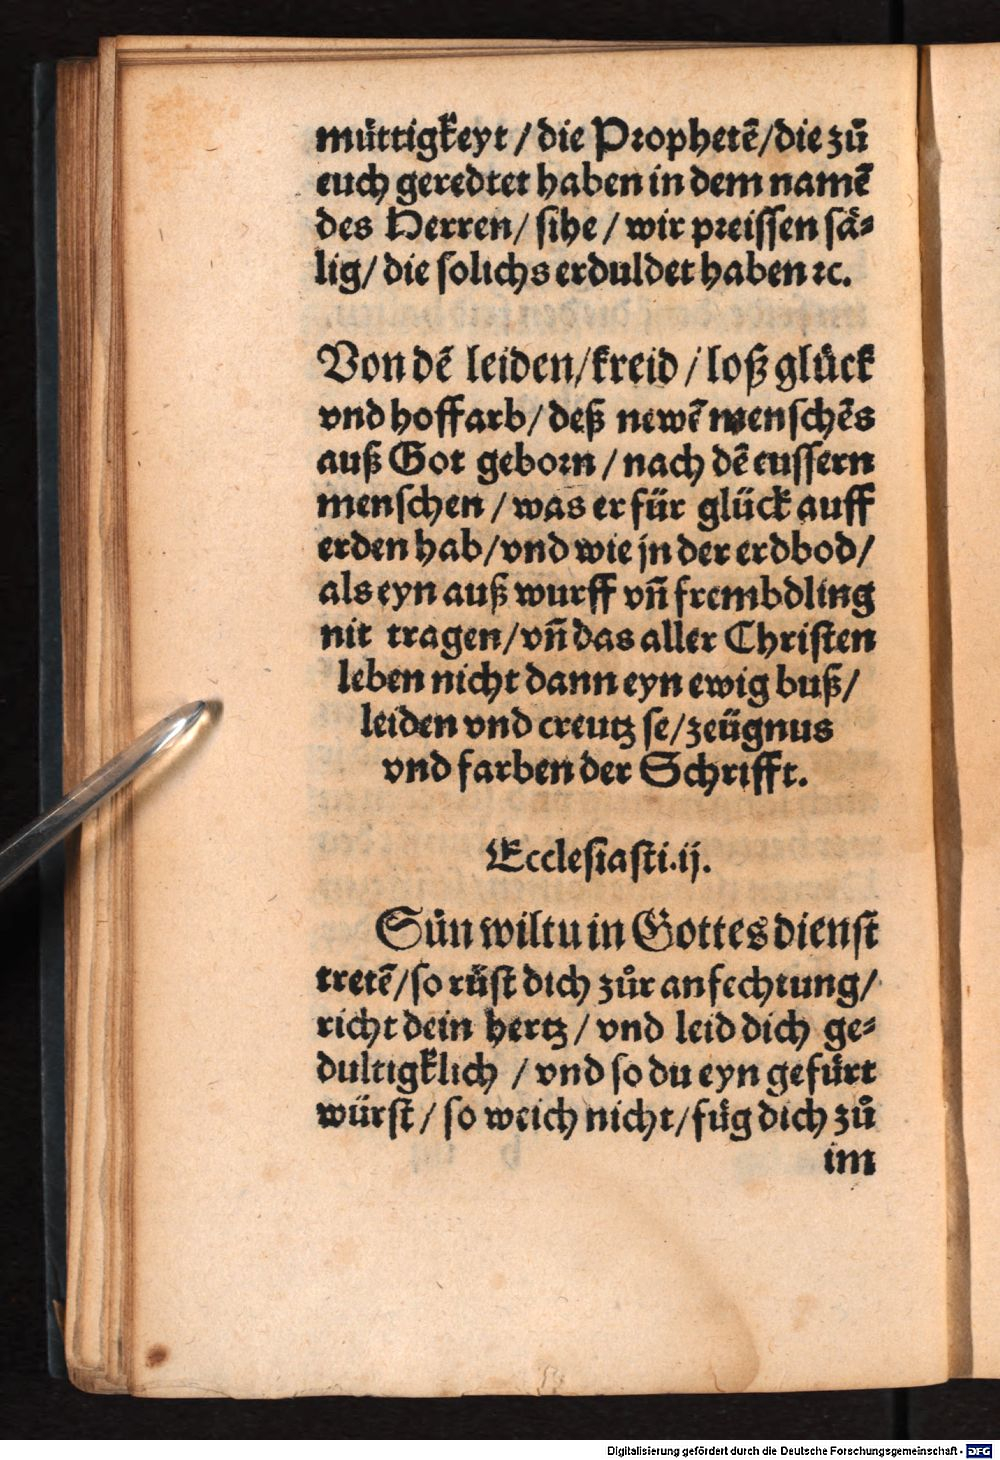 müttigkeyt / die Prophetē/die zů
euch geredtet haben in dem namē
des Herren/ sihe / wir preissen sä⸗
lig/ die solichs erduldet haben ꝛc.
Von dē leiden/kreid / loß glück
vnd hoffarb/ deß newē menschēs
auß Got geborn / nach dē eussern
menschen / was er für glück auff
erden hab/vnd wie jn der erdbod/
als eyn auß wurff vn̄ frembdling
nit tragen/vn̄ das aller Christen
leben nicht dann eyn ewig buß/
leiden vnd creutz se/zeügnus
vnd farben der Schrifft.
Ecclesiasti.ij.
Sůn wiltu in Gottes dienst
tretē/so rüst dich zůr anfechtung/
richt dein hertz / vnd leid dich ge⸗
dultigklich / vnd so du eyn gefürt
würst / so weich nicht/füg dich zů
im
Digitalisierung gefördert durch die Deutsche Forschungsgemeinschaft - DFG